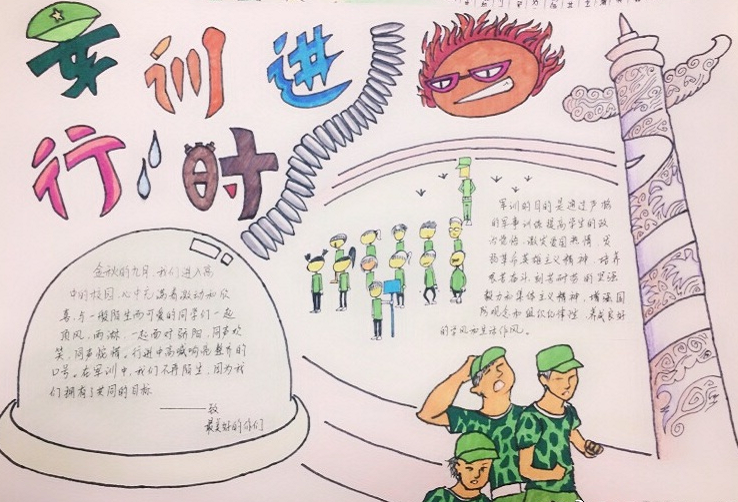 军训进
行时
金秋的九月，我们进入高
中的校园，心中充满着激动和欣
喜，与一般陌生而可爱的同学们一起
顶风，雨淋，一起面对骄阳，同声欢
笑，同声抱怨。行进中高喊响亮整齐的
口号。在军训中，我们不再陌生，因为我
们拥有了共同的目标
——致
最美好的你们
军训的目的是通过严格
的军事训练提高学生的政
治觉悟，激发爱国热情，发
扬革命英雄主义精神，培养
艰苦奋斗，刻苦耐劳的坚强
毅力和集体主义精神，增强国
防观念和组织纪律性，养成良好
的学风和生活作风。